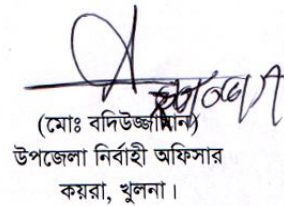 (মোঃ বদিউজ্জামান)
উপজেলা নির্বাহী অফিসার
কয়রা, খুলনা।